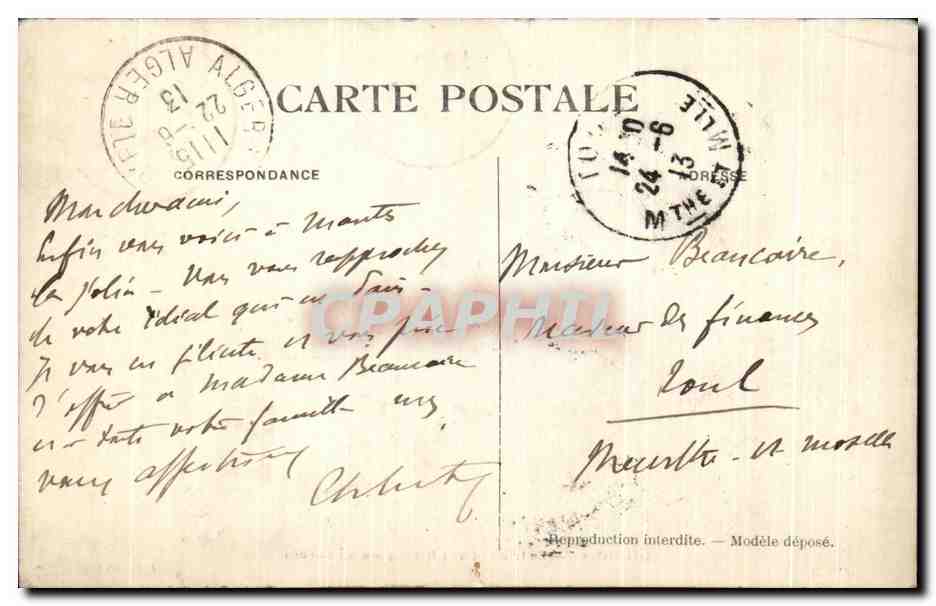 CARTE POSTALE
CORRESPONDANCE
ADRESSE
ALGER ALGER
11 15
22 - 6
13
TOUL
14 30
24 - 6
13
MTHE ET MLLE
Mon cher ami,
Enfin vous voici à Mantes
la Jolie - Vous vous rapprochez
de votre idéal qui est Paris -
Je vous en félicite et vous prie
d'offrir à Madame Beaucaire
et à toute votre famille mes
vœux affectueux
Monsieur Beaucaire,
Receveur des finances
Toul
Meurthe - et moselle
CPAPHIL
Reproduction interdite. — Modèle déposé.